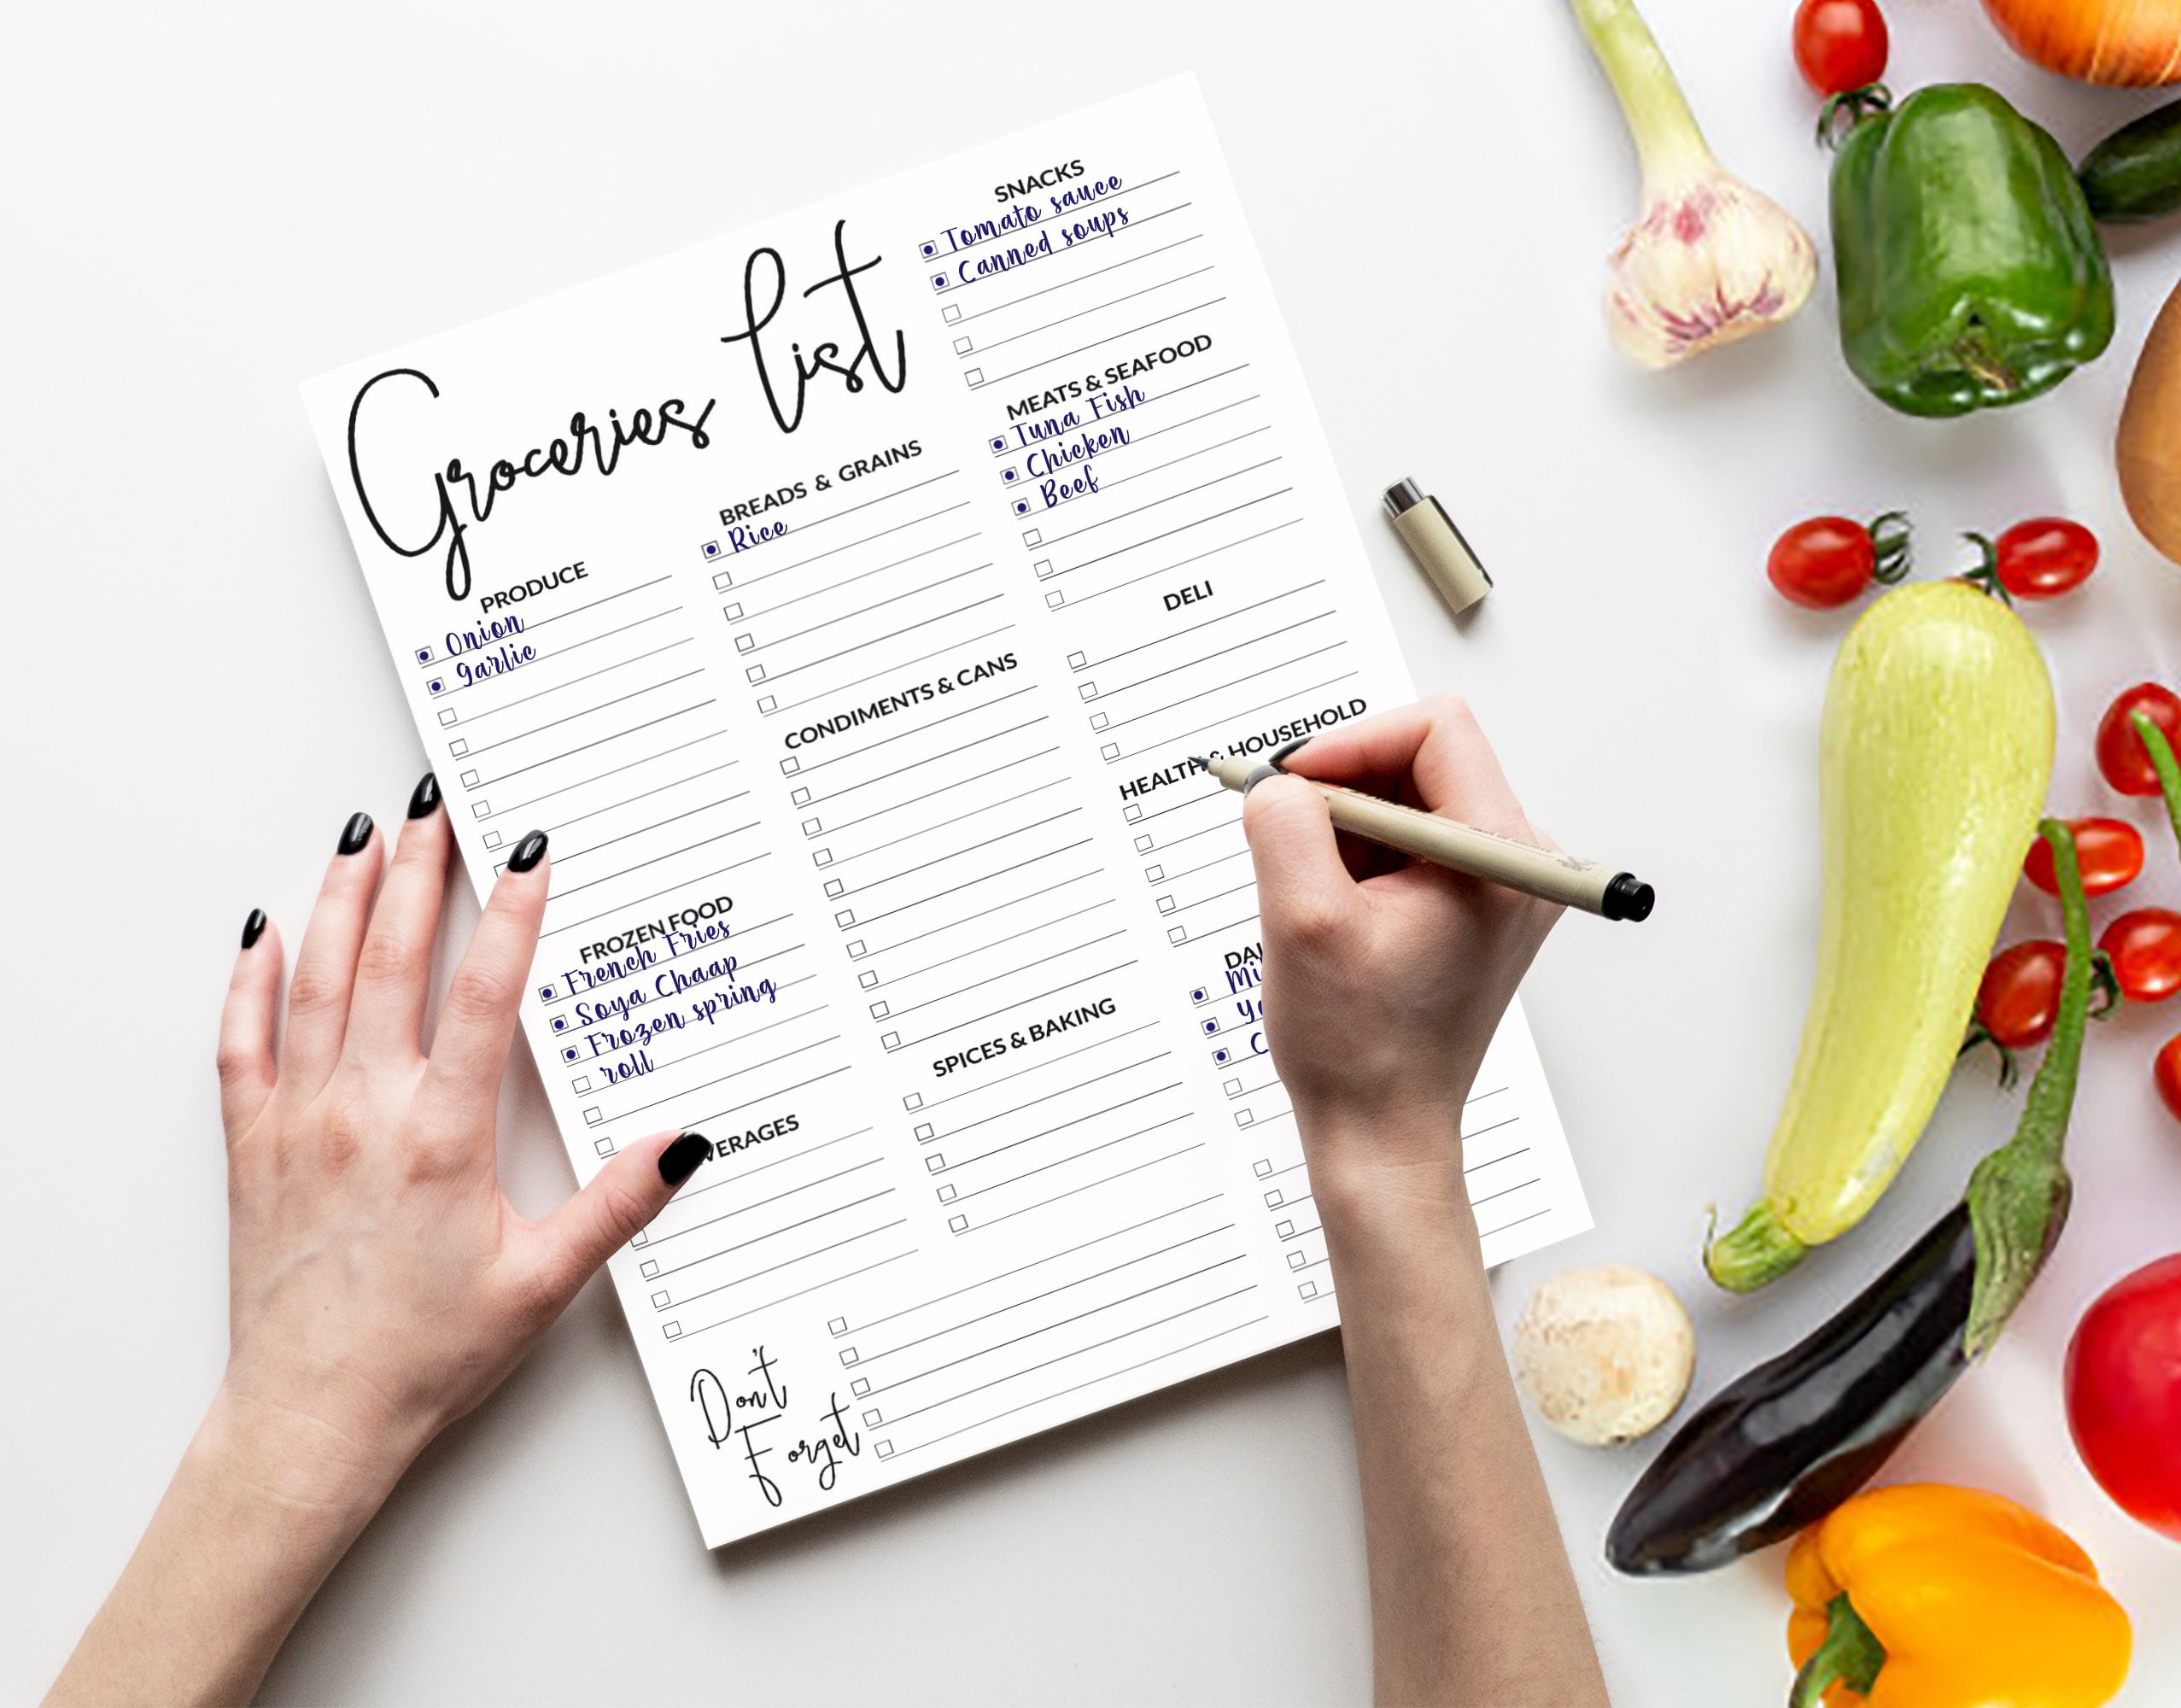 Groceries List
PRODUCE
Onion
garlic
FROZEN FOOD
French Fries
Soya Chaap
Frozen spring
roll
BREADS & GRAINS
Rice
CONDIMENTS & CANS
SPICES & BAKING
SNACKS
Tomato sauce
Canned soups
MEATS & SEAFOOD
Tuna Fish
Chicken
Beef
DELI
HEALTH & HOUSEHOLD
Don't
Forget